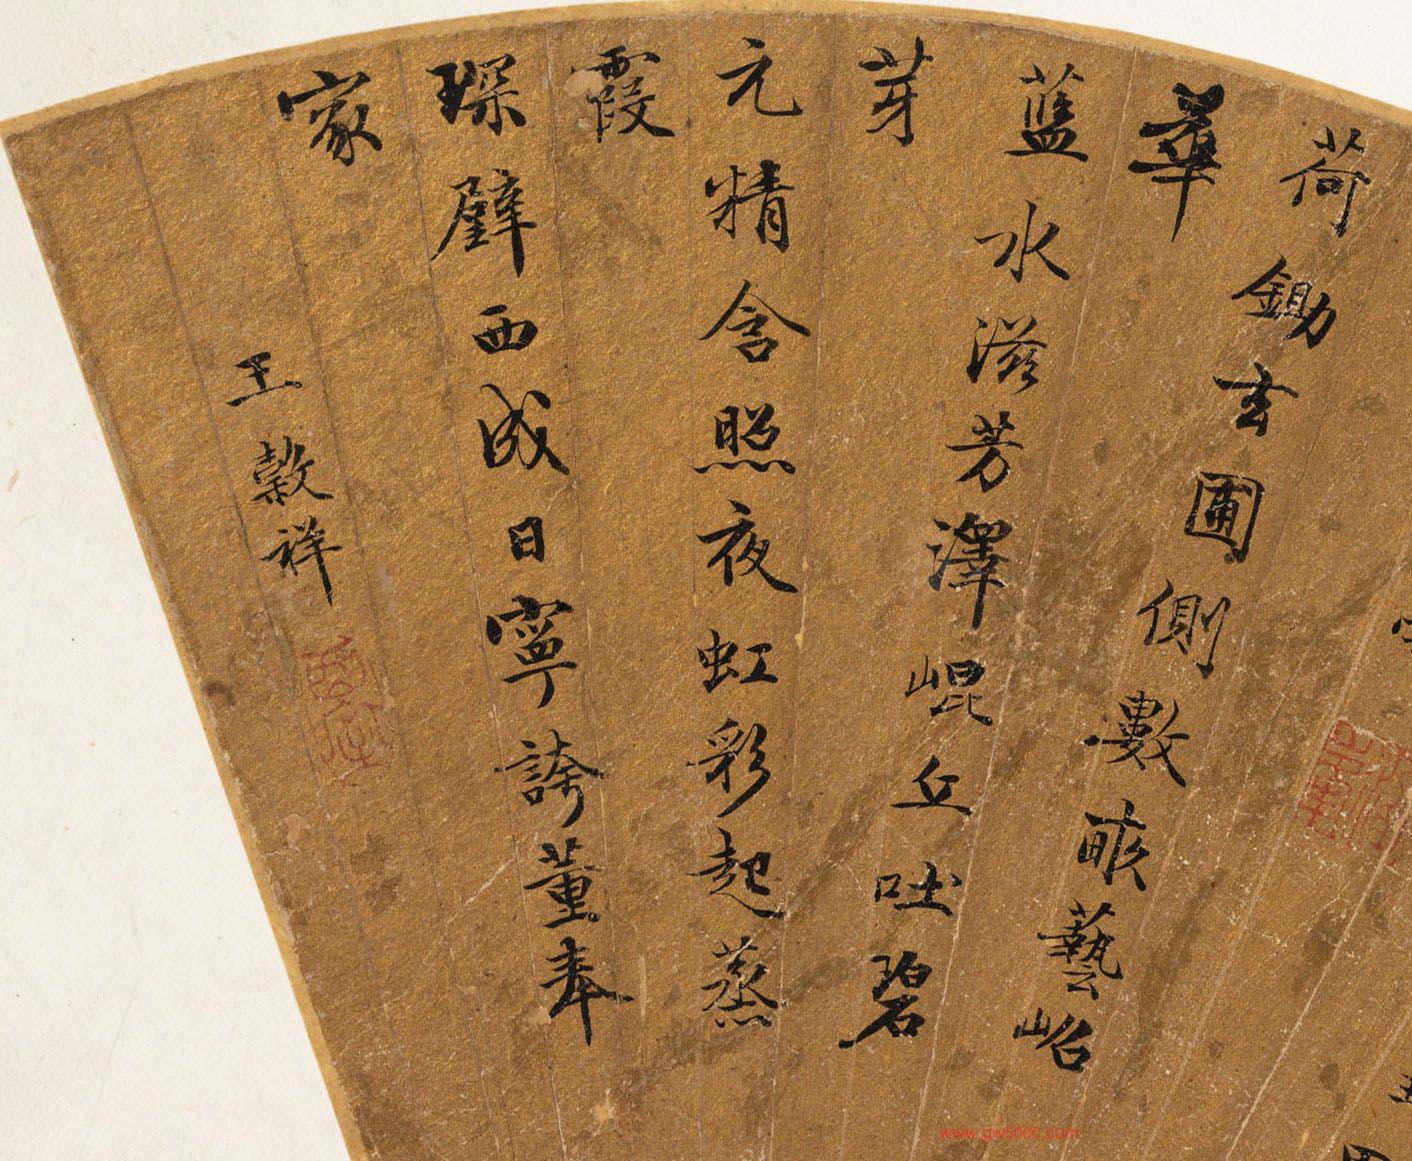 荷鋤玄圃側數畝藝岹
華
藍水滋芳澤崐丘吐碧
芽
元精含照夜虹彩起蒸
霞
琛璧西成日寧誇董奉
家
王穀祥
www.gw5000.com